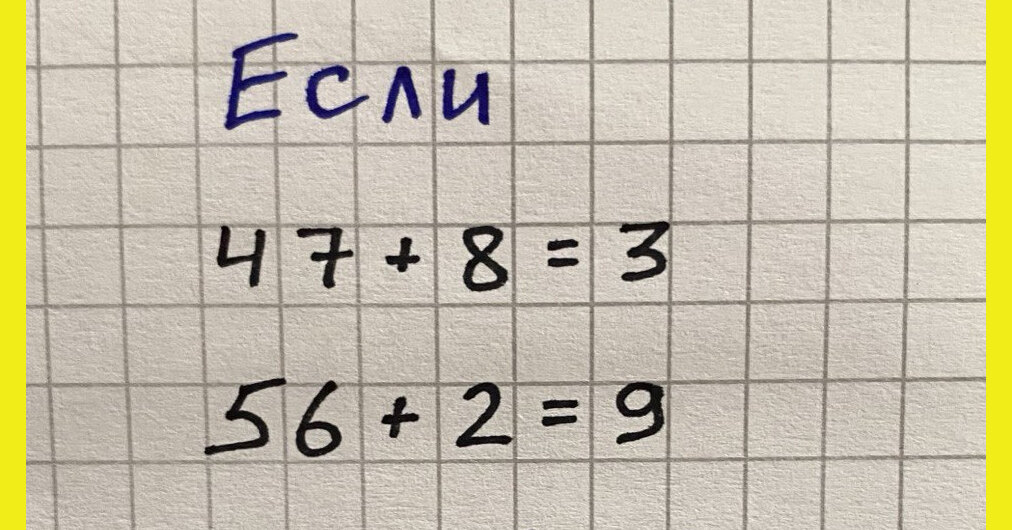 Если
47 + 8 = 3
56 + 2 = 9